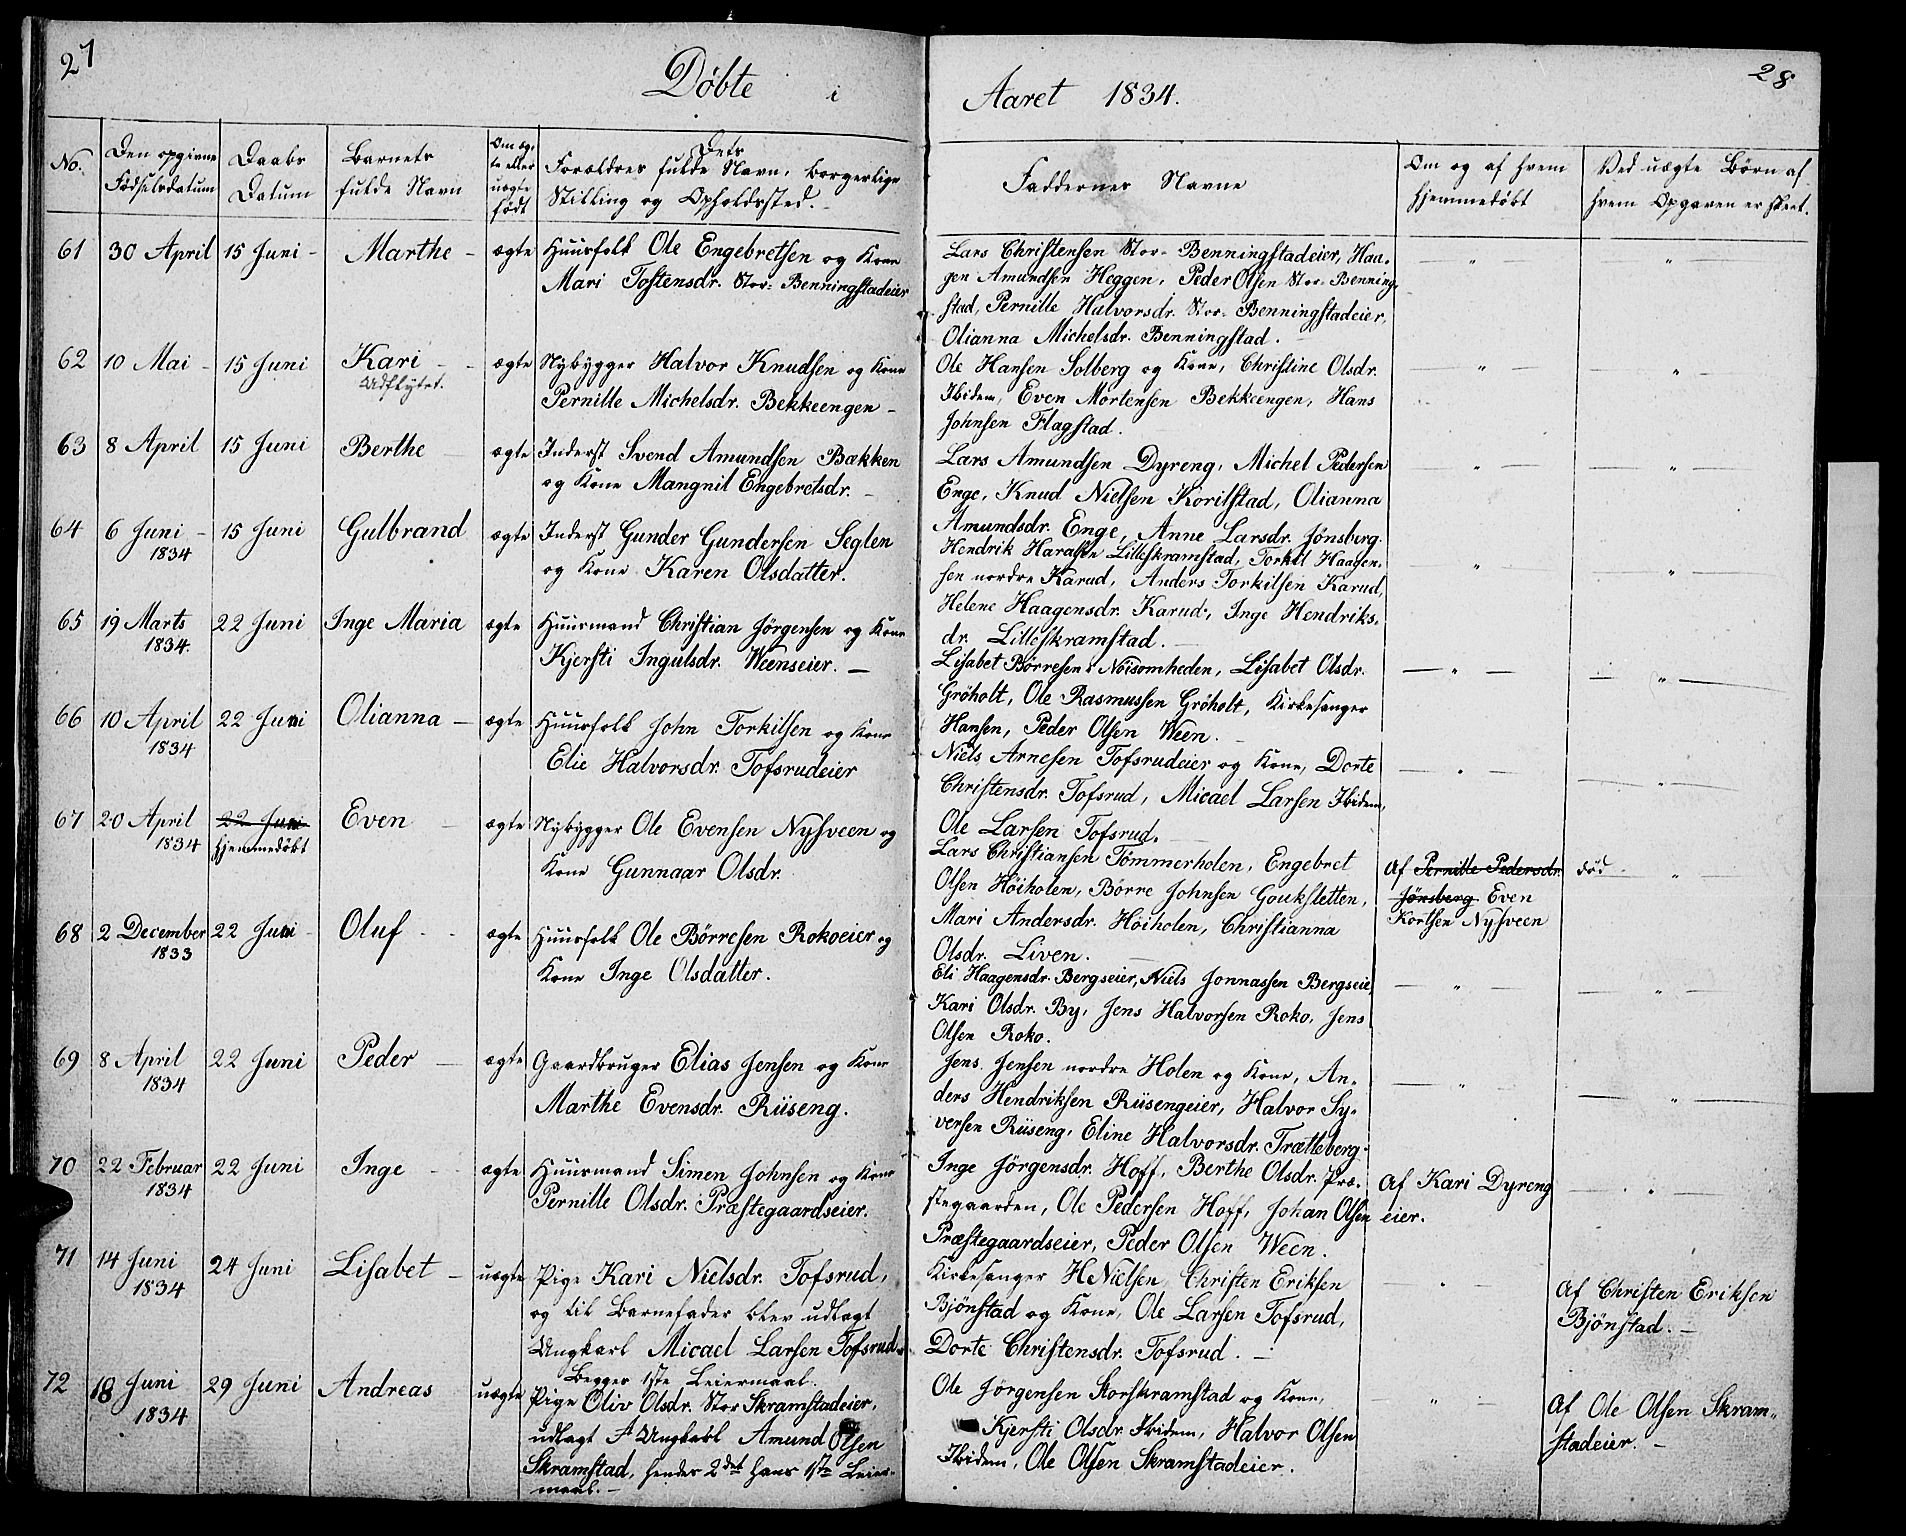 27
Døbte i
Aaret 1834.
28
No.
Den opgivne
Fødselsdatum
Daabs
Datum
Barnets
fulde Navn
Om æg-
te eller
uægte
født
Dets
Forældres fulde Navn, borgerlige
Stilling og Opholdssted.
Faddernes Navne
Om og af hvem
hjemmedøbt
Ved uægte Børn af
hvem Opgaven er skeet.
61 30 April 15 Juni - Marthe - ægte Huusfolk Ole Engebretsen og Kone
Mari Tostensdr. Stor-Benningstadeier
Lars Christensen Stor-Benningstadeier, Haa-
gen Amundsen Heggen, Peder Olsen Stor-Benning-
stad, Pernille Halvorsdr. Stor-Benningstadeier,
Olianna Michelsdr. Benningstad.
62 10 Mai - 15 Juni Kari - ægte Nybygger Halvor Knudsen og Kone
Udflytet.
Pernille Michelsdr. Bekkeengen -
Ole Hansen Solberg og Kone, Christine Olsdr.
Ibidem, Even Mortensen Bekkeengen, Hans
Johnsen Flagstad.
63 8 April 15 Juni Berthe - ægte Inderst Svend Amundsen Bækken
og Kone Mangnil Engebretsdr. -
Lars Amundsen Dyreng, Michel Pedersen
Enge, Knud Nielsen Korilstad, Olianna
Amundsdr. Enge, Anne Larsdr. Jønsberg.
64 6 Juni - 15 Juni Gulbrand ægte Inderst Gunder Gundersen Seglen
1834
og Kone Karen Olsdatter.
Hendrik Haraldsen Lilleskramstad, Torkil Haagen-
sen nordre Karud, Anders Torkilsen Karud,
Helene Haagensdr. Karud, Inge Hendriks-
dr. Lilleskramstad. -
65 19 Marts 22 Juni Inge Maria ægte Huusmand Christian Jörgensen og Kone
1834.
Kjersti Ingulsdr. Weenseier. -
Lisabet Börresen i Nöisomheden, Lisabet Olsdr.
Gröholt, Ole Rasmussen Gröholt, Kirkesanger
Hansen, Peder Olsen Ween. -
66 10 April 22 Juni Olianna - ægte Huusfolk John Torkilsen og Kone
1834
Elie Halvorsdr. Tofsrudeier
Niels Arnesen Tofsrudeier og Kone, Dorte
Christensdr. Tofsrud, Micael Larsen Ibidem,
Ole Larsen Tofsrud.
67 20 April 22 Juni Even - ægte Nybygger Ole Evensen Nysveen og
1834 hjemmedøbt
Kone Gunnaar Olsdr.
Lars Christiansen Tömmerholen, Engebret
Olsen Höiholen, Börre Johnsen Goukstetten,
Mari Andersdr. Höiholen, Christianna
Olsdr. Liven. -
Af Pernille Pedersdr.
Jönsberg Even
Kortsen Nysveen
død
68 2 December 22 Juni - Oluf - ægte Huusfolk Ole Börresen Rokoeier og
1833
Kone Inge Olsdatter.
Eli Haagensdr. Bergseier, Niels Jonnassen Bergseie,
Kari Olsdr. By, Jens Halvorsen Roko, Jens
Olsen Roko.
69 8 April 22 Juni Peder - ægte Gaardbruger Elias Jensen og Kone
1834
Marthe Evensdr. Riiseng.
Jens Jensen nordre Holen og Kone, An-
ders Hendriksen Riisengeier, Halvor Sy-
versen Riiseng, Eline Halvorsdr. Trætteberg.
70 22 Februar 22 Juni Inge - ægte Huusmand Simen Johnsen og Kone
1834
Pernille Olsdr. Præstegaardseier.
Inge Jörgensdr. Hoff, Berthe Olsdr. Præ-
stegaarden, Ole Pedersen Hoff, Johan Olsen
Præstegaardseier, Peder Olsen Ween.
Af Kari Dyreng
eier.
71 14 Juni 24 Juni Lisabet - uægte Pige Kari Nielsdr. Tofsrud,
1834
og til Barnefader blev udlagt
Ungkarl Micael Larsen Tofsrud.
Begges 1ste Leiermaal.
Kirkesanger HNielsen, Christen Eriksen
Bjönstad og Kone, Ole Larsen Tofsrud,
Dorte Christensdr. Tofsrud. -
Af Christen Eriksen
Bjönstad. -
72 18 Juni 29 Juni Andreas uægte Pige Oliv Olsdr. Stor Skramstadeier,
1834
udlagt Ungkarl Amund Olsen
Skramstad, hendes 2det hans 1ste Leier-
maal. -
Ole Jörgensen Storskramstad og Kone,
Kjersti Olsdr. Ibidem, Halvor Olsen
Ibidem, Ole Olsen Skramstadeier.
Af Ole Olsen Skram-
stadeier. -